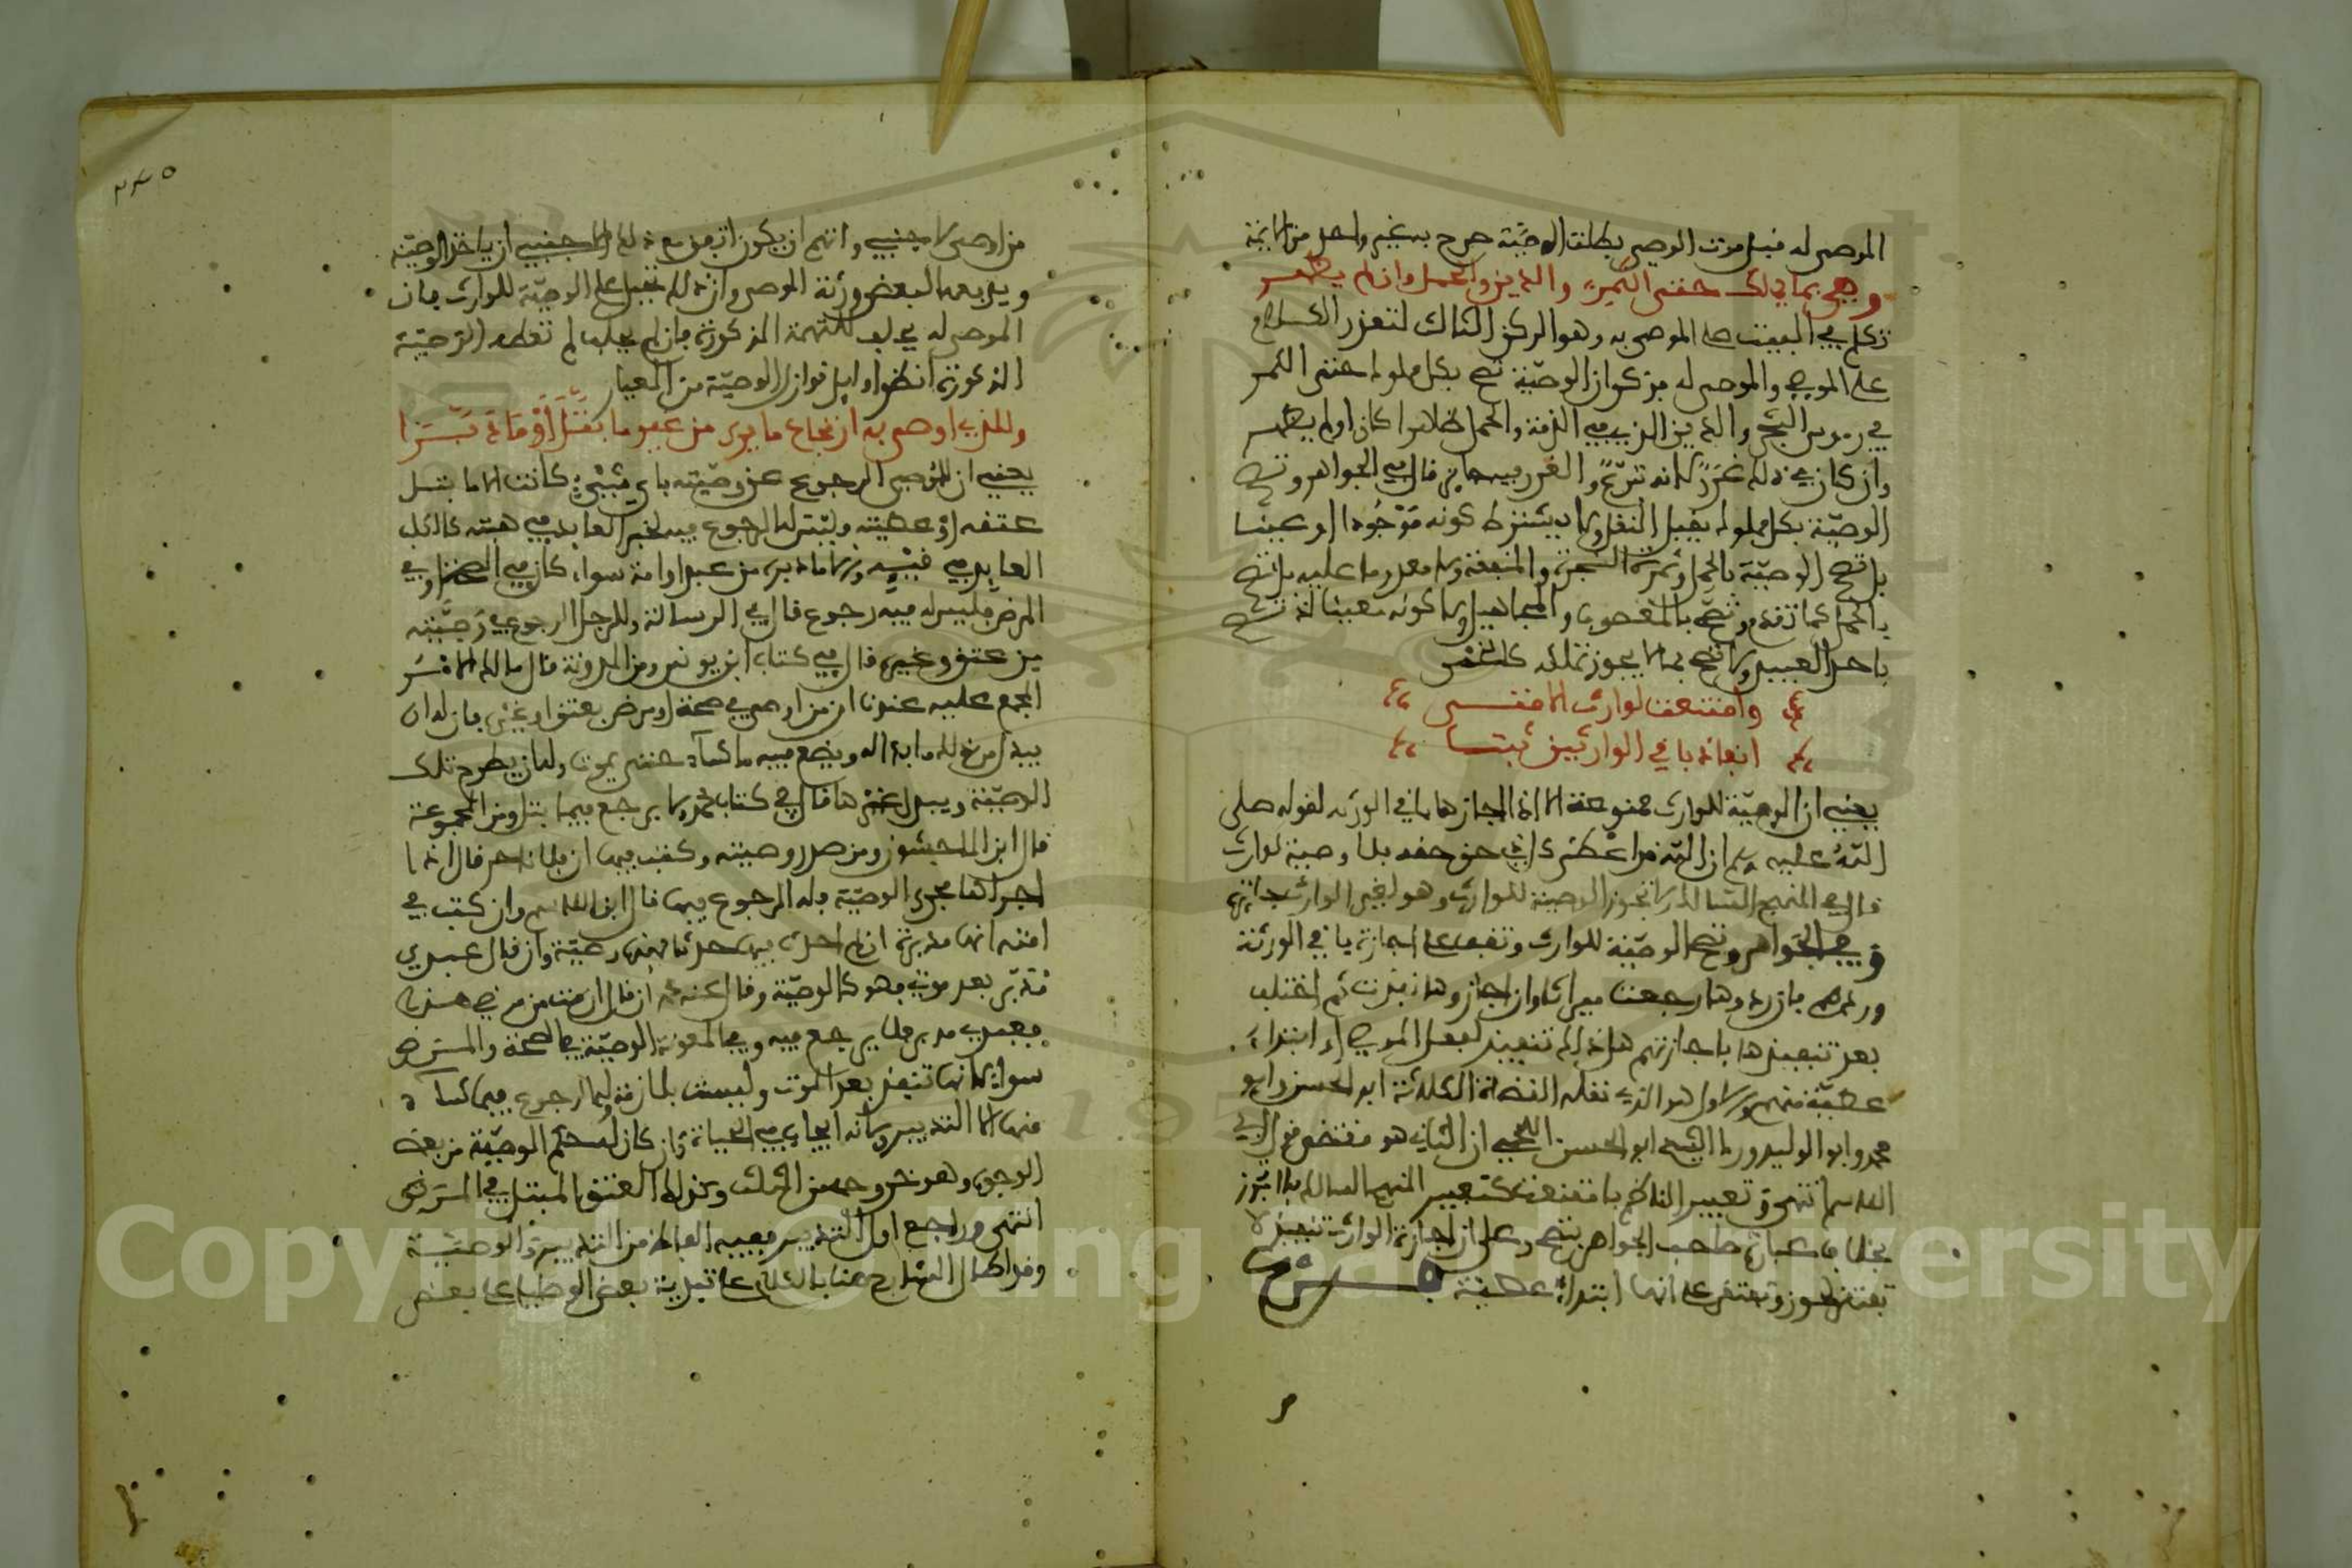 الموصى له قبل موت الموصي بطلت الوصية صرح به غير واحد من الايمة
وهي بما يملك حتى الثمر والدين والحمل وان لم يظهر
تكلم في البيت على الموصى به وهو الركن الثالث لتقدم الكلام
على الموصي والموصى له فذكر ان الوصية تصح بكل مملوك حتى الثمر
في رءوس الشجر والدين الذي في الذمة والحمل ظاهرا كان او لم يظهر
وان كان في ذلك غرر لانه تبرع والغرر فيه جائز قال في الجواهر وتصح
الوصية بكل مملوك يقبل النقل ولا يشترط كونه موجودا او عينا
بل تصح الوصية بالحمل وثمرة الشجرة والمنفعة ولا مقدورا عليه بل تصح
بالحمل كما تقدم وتصح بالمغصوب والمجاهيل ولا كونه معينا اذ تصح
باحد العبيد ولا تصح بما لا يجوز تملكه كالخمر
وامتنعت لوارث الا متى
انفاذ باقي الوارثين ثبتا
يعني ان الوصية للوارث ممنوعة الا اذا اجازها باقي الورثة لقوله صلى
الله عليه وسلم ان الله قد اعطى كل ذي حق حقه فلا وصية لوارث
قال في المنهج السالك لا تجوز الوصية للوارث وهو لغير الوارث جائزة
وفي الجواهر وتصح الوصية للوارث وتقف على اجازة باقي الورثة
وردهم فان ردوها رجعت ميراثا وان اجازوها نفذت ثم اختلف
بعد تنفيذها باجازتهم هل ذلك تنفيذ لفعل الموصي او ابتداء
عطية منهم والاول هو الذي نقله القضاة الثلاثة ابو الحسن وابو
محمد وابو الوليد ورءا الشيخ ابو الحسن اللخمي ان الثاني هو مقتضى قول ابن
القاسم انتهى وتعبير الناظم بامتنعت كتعبير المنهج السالك بلا تجوز
بخلاف عبارة صاحب الجواهر بتصح وعلى ان اجازة الوارث تنفيذ لا
تفتقر لحوز وتفتقر على انها ابتداء عطية
من اوصى لاجنبي واتهم ان يكون اتفق مع ذلك الاجنبي ان ياخذ الوصية
ويدفعها لبعض ورثة الموصي وان ذلك تحيل على الوصية للوارث فان
الموصى له يحلف للتهمة المذكورة فان لم يحلف لم تعطه الوصية
المذكورة انظر اوايل نوازل الوصية من المعيار
وللذي اوصى به ارتجاع ما يرى من غير ما بتل او ما دبرا
يعني ان للموصي الرجوع عن وصيته باي شيء كانت الا ما بتل
عتقه او عطيته وليس له الرجوع فيه لخبر العايد في هبته كالكلب
العايد في قيئه والا ما دبره من عبد او امة سواء كان في الصحة او في
المرض فليس له فيه رجوع قال في الرسالة وللرجل الرجوع في وصيته
من عتق وغيره قال في كتاب ابن يونس ومن المدونة قال مالك الامر
المجمع عليه عندنا ان من اوصى في صحة او مرض بعتق او غيره فان له ان
يبدل من ذلك ما بدا له ويضع فيه ما شاء حتى يموت وله ان يطرح تلك
الوصية ويبدل غيرها قال في كتاب محمد ولا يرجع فيما بتل ومن المجموعة
قال ابن الماجشون ومن صدر وصيته وكتب فيها ان قال اذا
اجراها مجرى الوصية فله الرجوع فيها قال ابن القاسم وان كتب في
امته انها مدبرة ان لم احدث فيها حدثا فهذه وصية وان قال عبدي
مدبر بعد موتي فهو كالوصية وقال عنه ان قال ان مت من مرضي هذا
فعبدي مدبر فلا يرجع فيه وفي المعونة الوصية في الصحة والمرض
سواء لانها تنفذ بعد الموت وليست بلازمة وله الرجوع فيما شاء
منها الا التدبير لانه ايجاب في الحياة وان كان له حكم الوصية من بعض
الوجوه وهو خروجه من الثلث وكذلك العتق المبتل في المرض
انتهى وراجع اول التدبير ففيه الفارق من التدبير والوصية
وقد اطال الشارح هنا بالكلام على تبدية بعض الوصايا على بعض